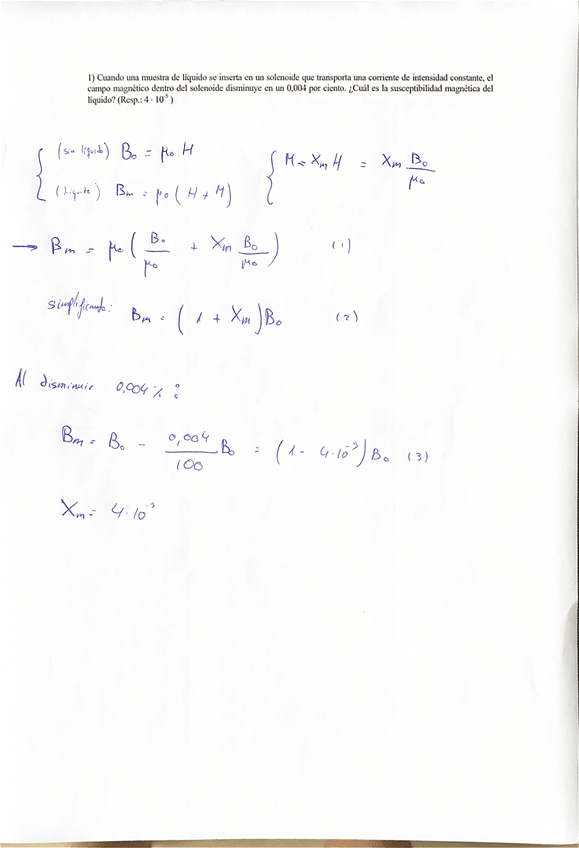 1) Cuando una muestra de líquido se inserta en un solenoide que transporta una corriente de intensidad constante, el
campo magnético dentro del solenoide disminuye en un 0,004 por ciento. ¿Cuál es la susceptibilidad magnética del
líquido? (Resp.: 4 · 10⁻⁵ )
{ (sin líquido) B₀ = μ₀ H
(líquido) Bₘ = μ₀ ( H + M )
{ M = Xₘ H = Xₘ B₀/μ₀
→ Bₘ = μ₀ ( B₀/μ₀ + Xₘ B₀/μ₀ ) (1)
simplificando: Bₘ = ( 1 + Xₘ ) B₀ (2)
Al disminuir 0,004 % :
Bₘ = B₀ - 0,004/100 B₀ = ( 1 - 4·10⁻⁵ ) B₀ (3)
Xₘ = 4·10⁻⁵